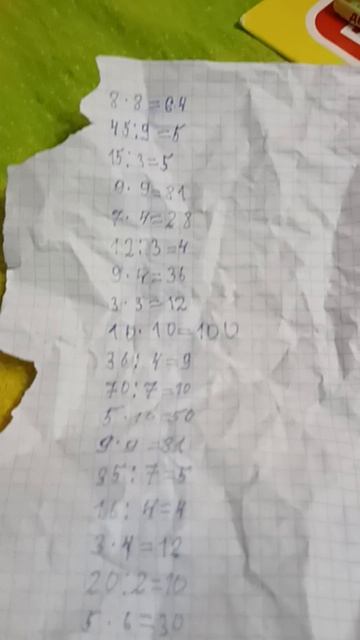 8·8=64
45:9=5
15:3=5
9·9=81
7·4=28
12:3=4
9·4=36
3·3=12
10·10=100
36:4=9
70:7=10
5·10=50
9·9=81
35:7=5
16:4=4
3·4=12
20:2=10
5·6=30